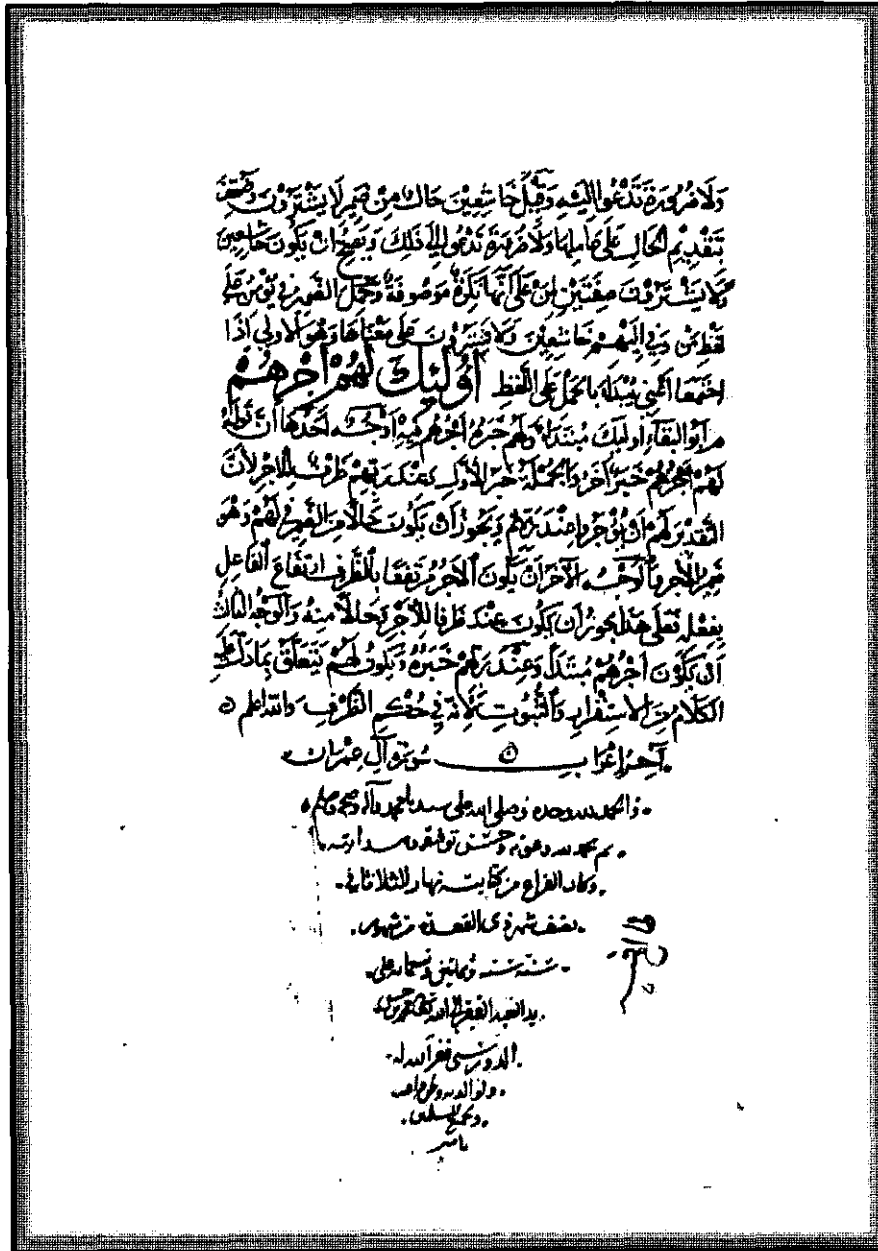 ولا ضرورة تدعوا اليه وقيل خاشعين حال من ضمير لا يشترون وضعف
تقديم الحال على عاملها ولا ضرورة تدعوا الى ذلك ويصح ان يكون خاشعين
ولا يشترون صفتين لمن على انها نكرة موصوفة وحمل الضمير في يؤمن على
لفظ من وفي اليهم خاشعين ولا يشترون على معناها وهو الاولى اذا
اجتمعا اعني يبدا بالحمل على اللفظ اوليك لهم اجرهم
م ابو البقاء اوليك مبتدا ولهم خبره اجرهم فيه اوجه احدها ان قوله
لهم اجرهم خبر اخر والجملة خبر الاول وعند ربهم ظرف للاجر لان
التقدير لهم ان يؤجروا عند ربهم ويجوز ان يكون حالا من الضمير في لهم وهو
ضمير الاجر والوجه الآخر ان يكون الاجر مرتفعا بالظرف ارتفاع الفاعل
بفعله فعلى هذا يجوز ان يكون عند ظرفا للاجر وحالا منه والوجه الثالث
ان يكون اجرهم مبتدا وعند ربهم خبره ويكون لهم يتعلق بما دل عليه
الكلام من الاستقرار والثبوت لانه في حكم الظرف والله اعلم
آخر اعراب سورة آل عمران
والحمد لله وحده وصلى الله على سيدنا محمد وآله وصحبه وسلم
تم بحمد لله وعونه وحسن توفيقه
وكان الفراغ من كتابته نهار الثلاثا في
نصف شهر ذي القعدة من شهور
سنة ستة وثمانين وتسمايه على
يد العبد الفقير الى الله تعالى محمد بن حسن
غفر الله له
ولوالديه
ولجميع المسلمين